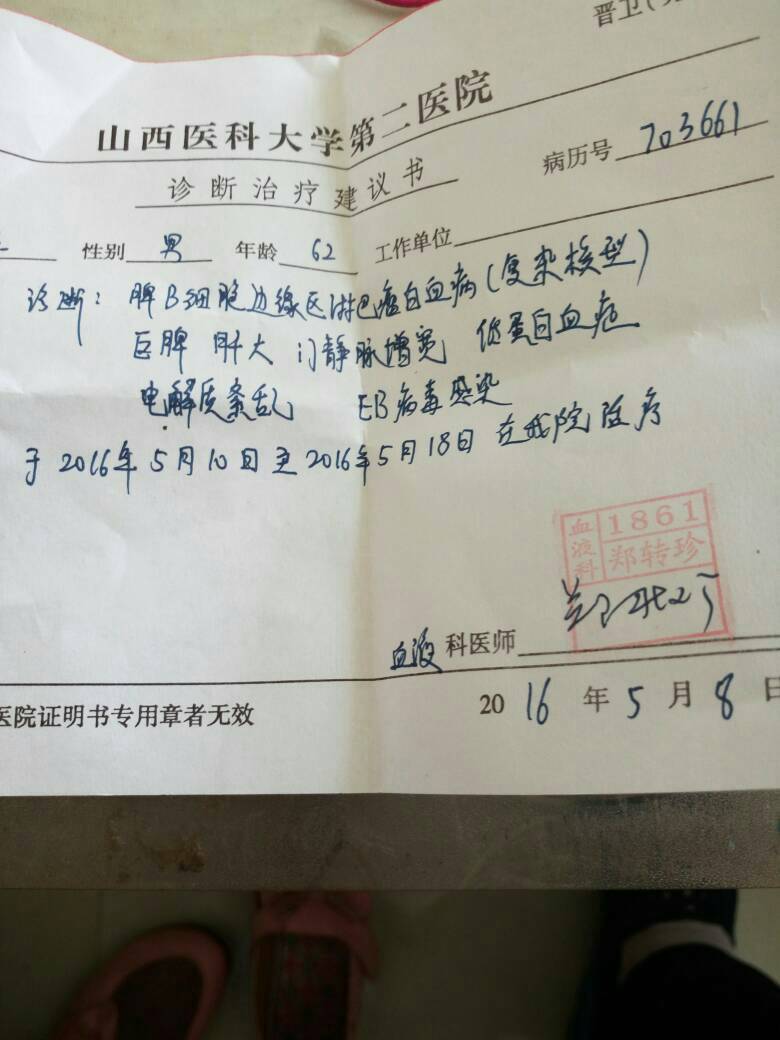 晋卫(
山西医科大学第二医院
诊断治疗建议书
病历号 703661
性别 男 年龄 62 工作单位
诊断：脾B细胞边缘区淋巴瘤白血病(复杂核型)
巨脾 肝大 门静脉增宽 低蛋白血症
电解质紊乱 EB病毒感染
于2016年5月10日至2016年5月18日在我院治疗
血液科 1861
郑转珍
血液 科医师
2016年5月8日
医院证明书专用章者无效